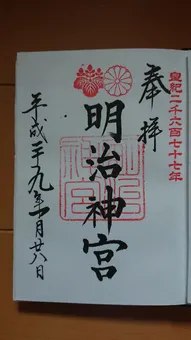 皇紀二千六百七十七年
奉拝
明治神宮
平成廿九年一月廿八日